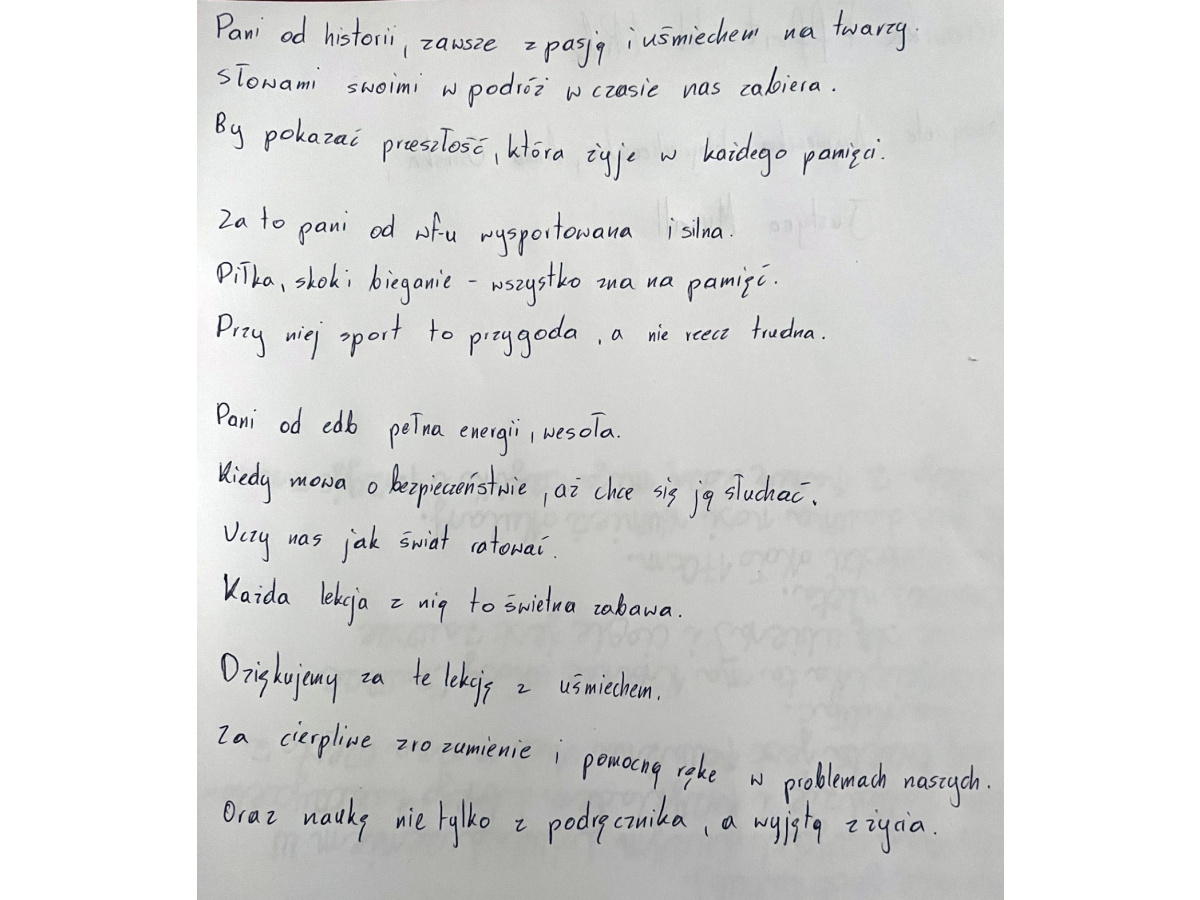 Pani od historii, zawsze z pasją i uśmiechem na twarzy.
Słowami swoimi w podróż w czasie nas zabiera.
By pokazać przeszłość, która żyje w każdego pamięci.
Za to pani od wf-u wysportowana i silna.
Piłka, skok i bieganie - wszystko zna na pamięć.
Przy niej sport to przygoda, a nie rzecz trudna.
Pani od edb pełna energii, wesoła.
Kiedy mowa o bezpieczeństwie, aż chce się ją słuchać.
Uczy nas jak świat ratować.
Każda lekcja z nią to świetna zabawa.
Dziękujemy za te lekcję z uśmiechem.
Za cierpliwe zrozumienie i pomocną rękę w problemach naszych.
Oraz naukę nie tylko z podręcznika, a wyjętą z życia.